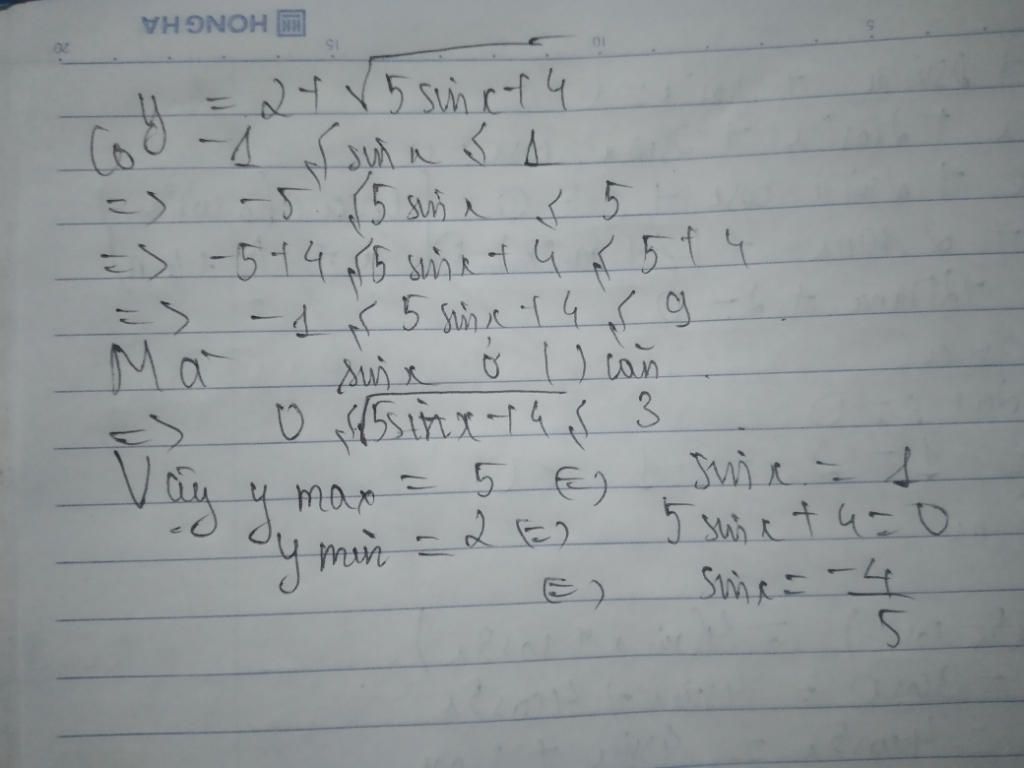 HONG HA
20 15 10 5
y = 2 + √(5 sin x + 4)
Có -1 ≤ sin x ≤ 1
=> -5 ≤ 5 sin x ≤ 5
=> -5+4 ≤ 5 sin x + 4 ≤ 5 + 4
=> -1 ≤ 5 sin x + 4 ≤ 9
Mà sin x ở () căn
=> 0 ≤ √(5 sin x + 4) ≤ 3
Vậy y max = 5 (=) sin x = 1
y min = 2 (=) 5 sin x + 4 = 0
(=) sin x = -4/5